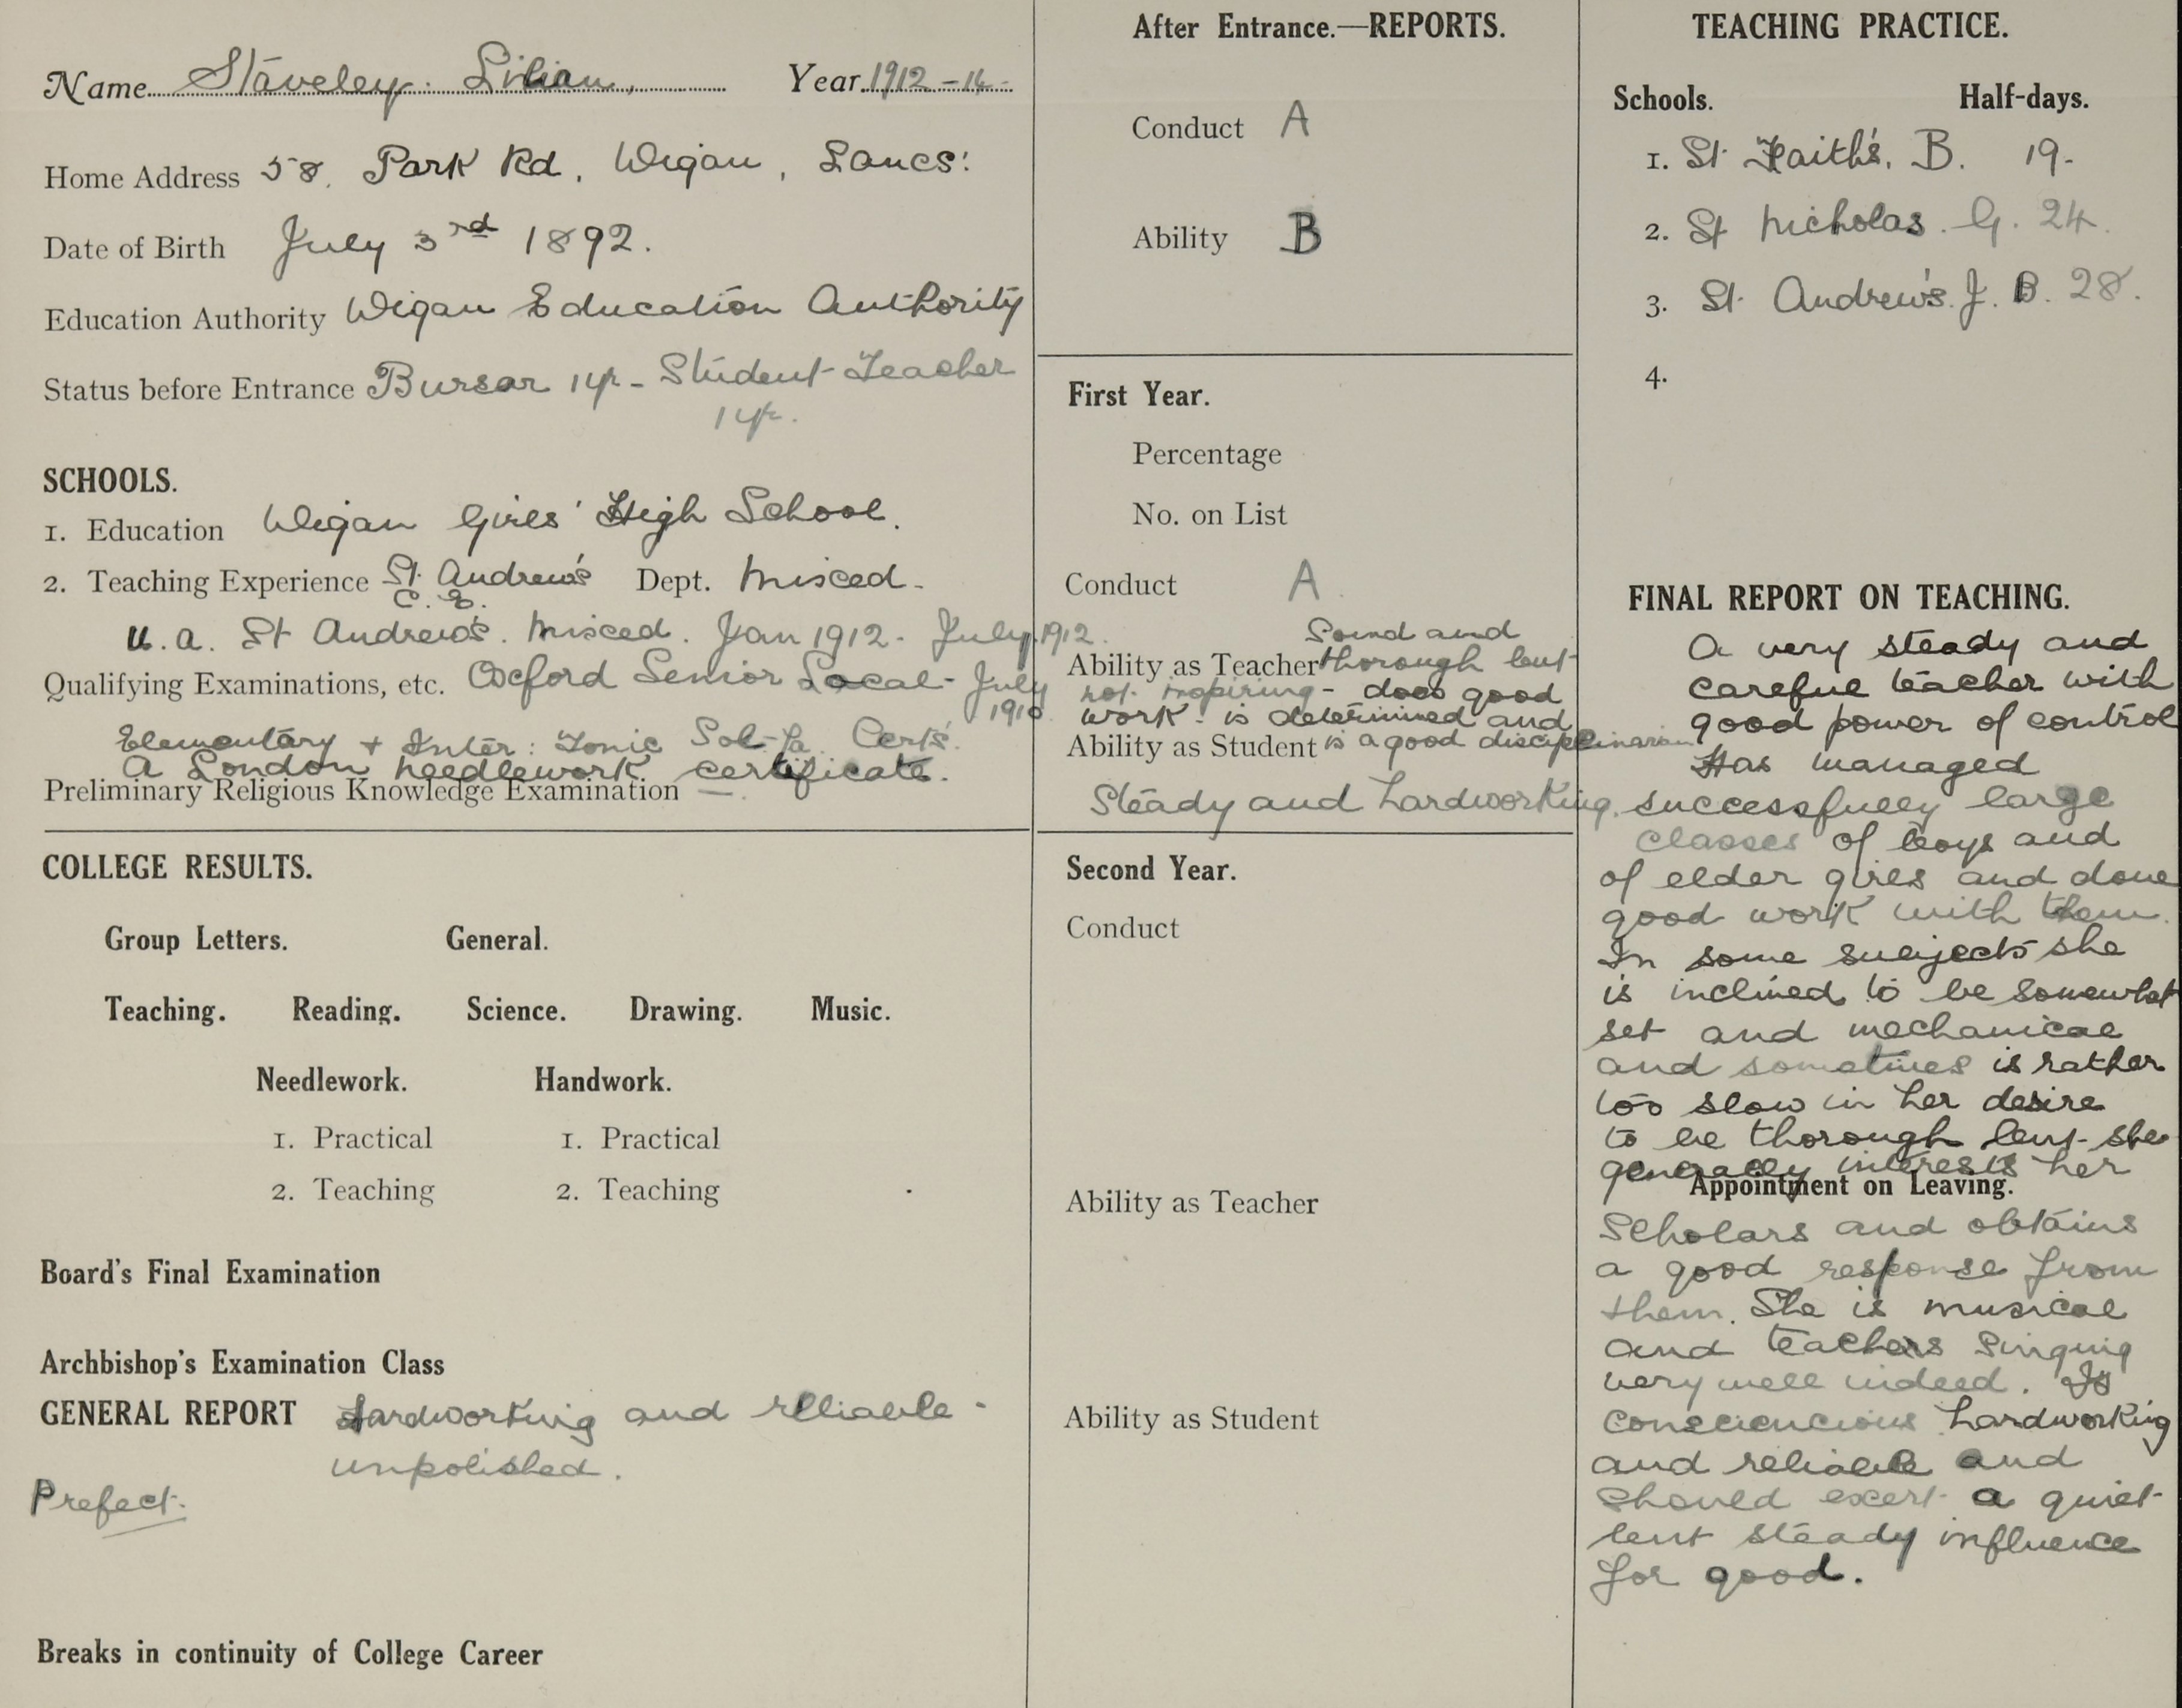 Name Staveley. Lilian, Year 1912-14
Home Address 58. Park Rd, Wigan, Lancs:
Date of Birth July 3rd 1892.
Education Authority Wigan Education Authority
Status before Entrance Bursar 1yr - Student-Teacher
1yr.
SCHOOLS.
1. Education Wigan Girls' High School.
2. Teaching Experience St. Andrew's Dept. Mixed.
C.E.
U.a. St Andrew's. Mixed. Jan 1912 - July 1912.
Qualifying Examinations, etc. Oxford Senior Local - July
1910
Elementary + Inter: Tonic Sol-fa. Certs.
A London needlework certificate.
Preliminary Religious Knowledge Examination —.
COLLEGE RESULTS.
Group Letters. General.
Teaching. Reading. Science. Drawing. Music.
Needlework. Handwork.
1. Practical 1. Practical
2. Teaching 2. Teaching
Board's Final Examination
Archbishop's Examination Class
GENERAL REPORT Hardworking and reliable -
unpolished.
Prefect.
Breaks in continuity of College Career
After Entrance.—REPORTS.
Conduct A
Ability B
First Year.
Percentage
No. on List
Conduct A
Sound and
Ability as Teacher thorough but
not inspiring - does good
work - is determined and
Ability as Student is a good disciplinarian
Steady and hardworking.
Second Year.
Conduct
Ability as Teacher
Ability as Student
TEACHING PRACTICE.
Schools. Half-days.
1. St. Faith's. B. 19.
2. St Nicholas. G. 24.
3. St. Andrew's. J. B. 28.
4.
FINAL REPORT ON TEACHING.
A very steady and
careful teacher with
good power of control
Has managed
successfully large
classes of boys and
of elder girls and done
good work with them.
In some subjects she
is inclined to be somewhat
set and mechanical
and sometimes is rather
too slow in her desire
to be thorough but she
generally interests her
Appointment on Leaving.
scholars and obtains
a good response from
them. She is musical
and teaches singing
very well indeed. Is
consciencious hardworking
and reliable and
should exert a quiet
but steady influence
for good.